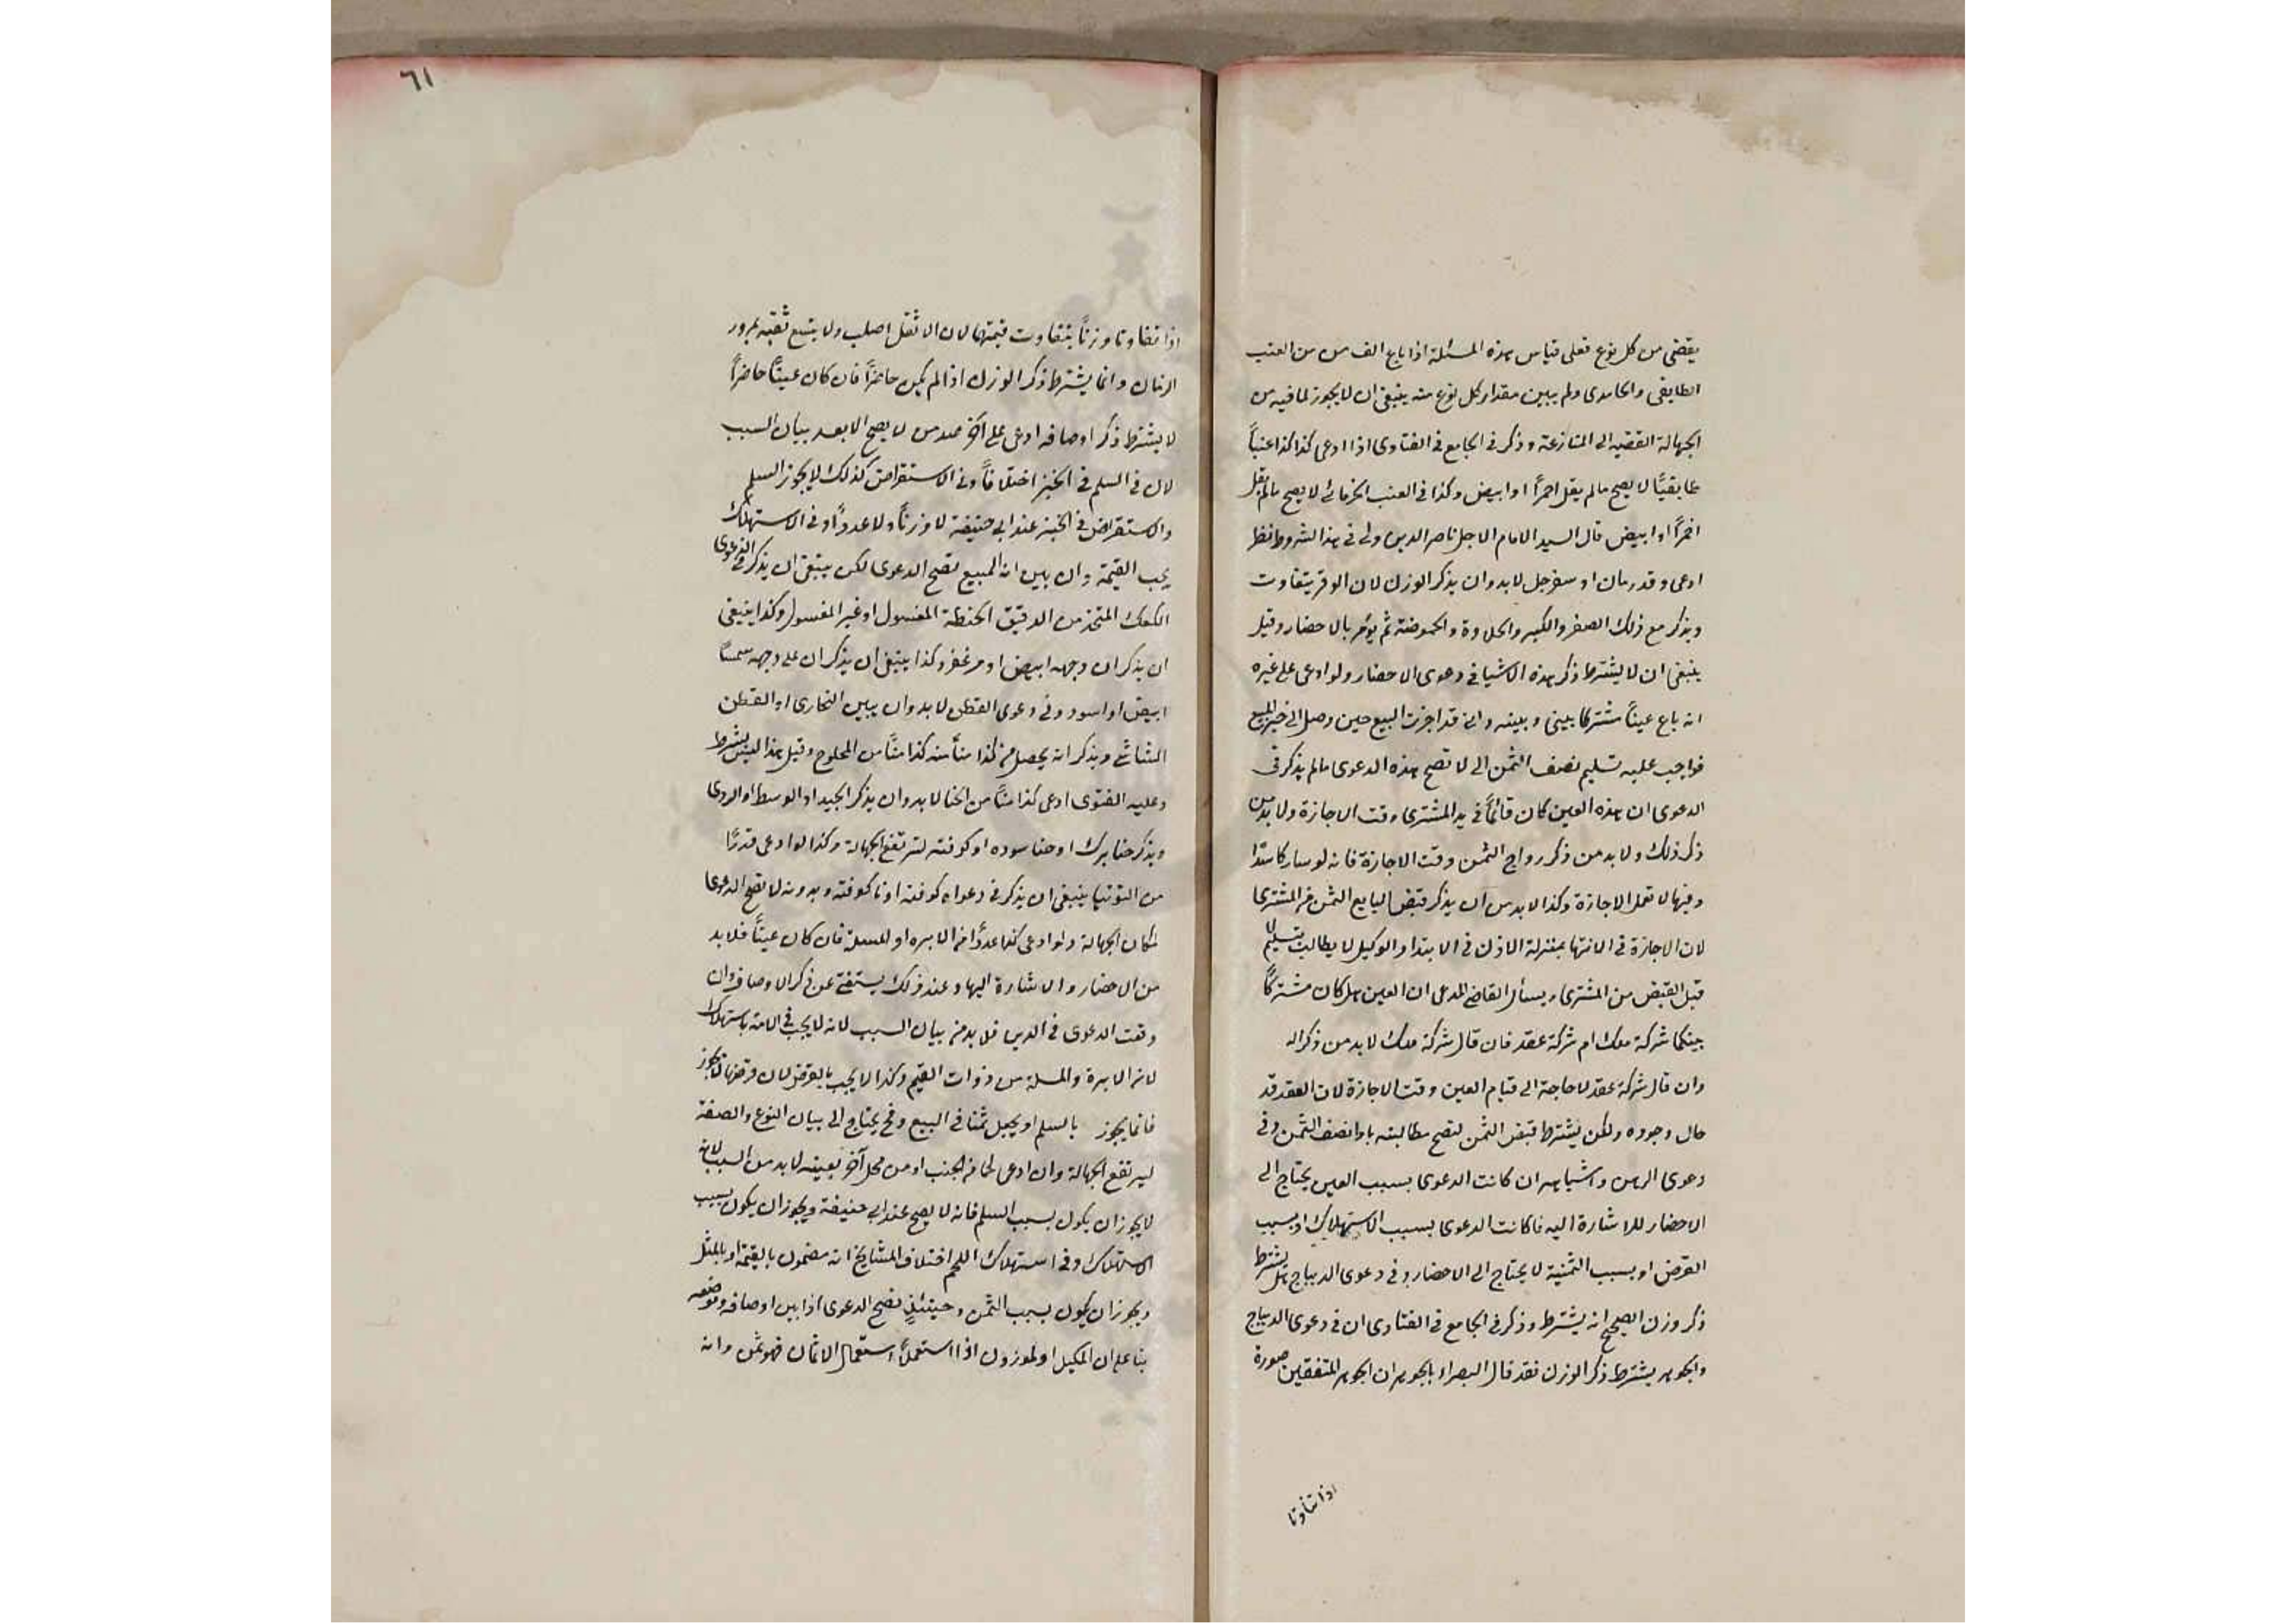 يقضى من كل نوع فعلى قياس هذه المسئلة اذا باع الف من من العنب
الطايفى والحامدى ولم يبين مقدار كل نوع منه ينبغى ان لا يجوز لما فيه من
الجهالة القضيه الى المنازعة وذكر فى الجامع فى الفتاوى اذا ادعى كذا كذا عنباً
طايفيًّا لا يصح مالم يقل احمرًا او ابيض وكذا فى العنب لا يصح مالم يقل
احمرًا او ابيض قال السيد الامام الاجل ناصر الدين ولى فى هذا الشروط نظر
ادعى وقدر مان او سفرجل لابد وان يذكر الوزن لان الوقر يتفاوت
ويذكر مع ذلك الصغر والكبر والحلاوة والحموضة ثم يؤمر بالاحضار وقيل
ينبغى ان لا يشترط ذكر هذه الاشيا فى دعوى الاحضار ولو ادعى على غيره
انه باع عينًا مشتركا بينى وبينه وانى قد اجزت البيع حين وصل الى خبر البيع
فواجب عليه تسليم نصف الثمن الى لا تصح هذه الدعوى مالم يذكر فى
الدعوى ان هذه العين كان قائمًا فى يد المشترى وقت الاجازة ولا بد من
ذكر ذلك ولا بد من ذكر رواج الثمن وقت الاجازة فانه لو سار كاسدًا
وفيها لا تعمل الاجازة وكذا لا بد من ان يذكر قبض البايع الثمن من المشترى
لان الاجازة فى الانتها بمنزلة الاذن فى الابتدا والوكيل لا يطالب بتسليم
قبل القبض من المشترى ويسأل القاضى المدعى ان العين هل كان مشتركًا
بينكما شركة ملك ام شركة عقد فان قال شركة ملك لا بد من ذكر اله
وان قال شركة عقد لا حاجة الى قيام العين وقت الاجازة لان العقد قد
حال وجوده ولكن يشترط قبض الثمن لتصح مطالبته بادا نصف الثمن وفى
دعوى الرهن واشباهه ان كانت الدعوى بسبب العين يحتاج الى
الاحضار للاشارة اليه فاكانت الدعوى بسبب الاستهلاك او بسبب
القرض او بسبب الثمنية لا يحتاج الى الاحضار وفى دعوى الديباج هل يشترط
ذكر وزن الصحيح انه يشترط وذكر فى الجامع فى الفتاوى ان فى دعوى الديباج
والجوهر يشترط ذكر الوزن فقد قال البصراء بالجوهر ان الجوهر المتفقين صورة
اذا تفاوتا
٦١
اذا تفاوتا وزنًا يتفاوت قيمتهما لان الاثقل اصلب ولا يتسع ثقبه بمرور
الزمان وانما يشترط ذكر الوزن اذا لم يكن حاضرًا فان كان عينًا حاضرًا
لا يشترط ذكر اوصافه ادعى على آخر من لا يصح الا بعد بيان السبب
لان فى السلم فى الخبز اختلافًا وفى الاستقراض كذلك لا يجوز السلم
والاستقراض فى الخبز عند ابى حنيفة لا وزنًا ولا عددًا وفى الاستهلاك
يجب القيمة وان بين انه المبيع تصح الدعوى لكن ينبغى ان يذكر فى الدعوى
الكعك المتخذ من الدقيق الحنطة المغسول او غير المغسول وكذا ينبغى
ان يذكر ان وجهه ابيض او مزعفر وكذا ينبغى ان يذكر ان على وجهه سمسمًا
ابيض او اسود وفى دعوى القطن لا بد وان يبين البخارى او القطن
الشاشى ويذكر انه يحصل من كذا منًا منه كذا منًا من المحلوج وقيل هذا ليس بشرط
وعليه الفتوى ادعى كذا منًا من الحنا لا بد وان يذكر الجيد او الوسط او الردى
ويذكر حنا برك او حنا سوده او كوفته لترتفع الجهالة وكذا لو ادعى قدرًا
من التوتيا ينبغى ان يذكر فى دعواه كوفته او نا كوفته وبدونه لا تصح الدعوى
لمكان الجهالة ولو ادعى كذا عددًا من الابره او المسلة فان كان عينًا فلا بد
من الاحضار والاشارة اليها وعند ذلك يستغنى عن ذكر الاوصاف وان
وقعت الدعوى فى الدين فلا بد من بيان السبب لانه لا يجب فى الامة باستهلاك
لان الابرة والمسلة من ذوات القيم وكذا لا يجب بالقرض لان قرضها لا يجوز
فانما يجوز بالسلم او يجعل ثمنا فى البيع وفح يحتاج الى بيان النوع والصفة
ليرتفع الجهالة وان ادعى لحما من الجنب او من محل آخر بعينه لا بد من السبب لانه
لا يجوز ان يكون بسبب السلم فانه لا يصح عند ابى حنيفة ويجوز ان يكون بسبب
الاستهلاك وفى استهلاك اللحم اختلاف المشايخ انه مضمون بالقيمة او بالمثل
ويجوز ان يكون بسبب الثمن وحينئذٍ تصح الدعوى اذا بين اوصافه وموضعه
بنا على ان المكيل او لموزون اذا استعملا استعمال الاثمان فهو ثمن وانه